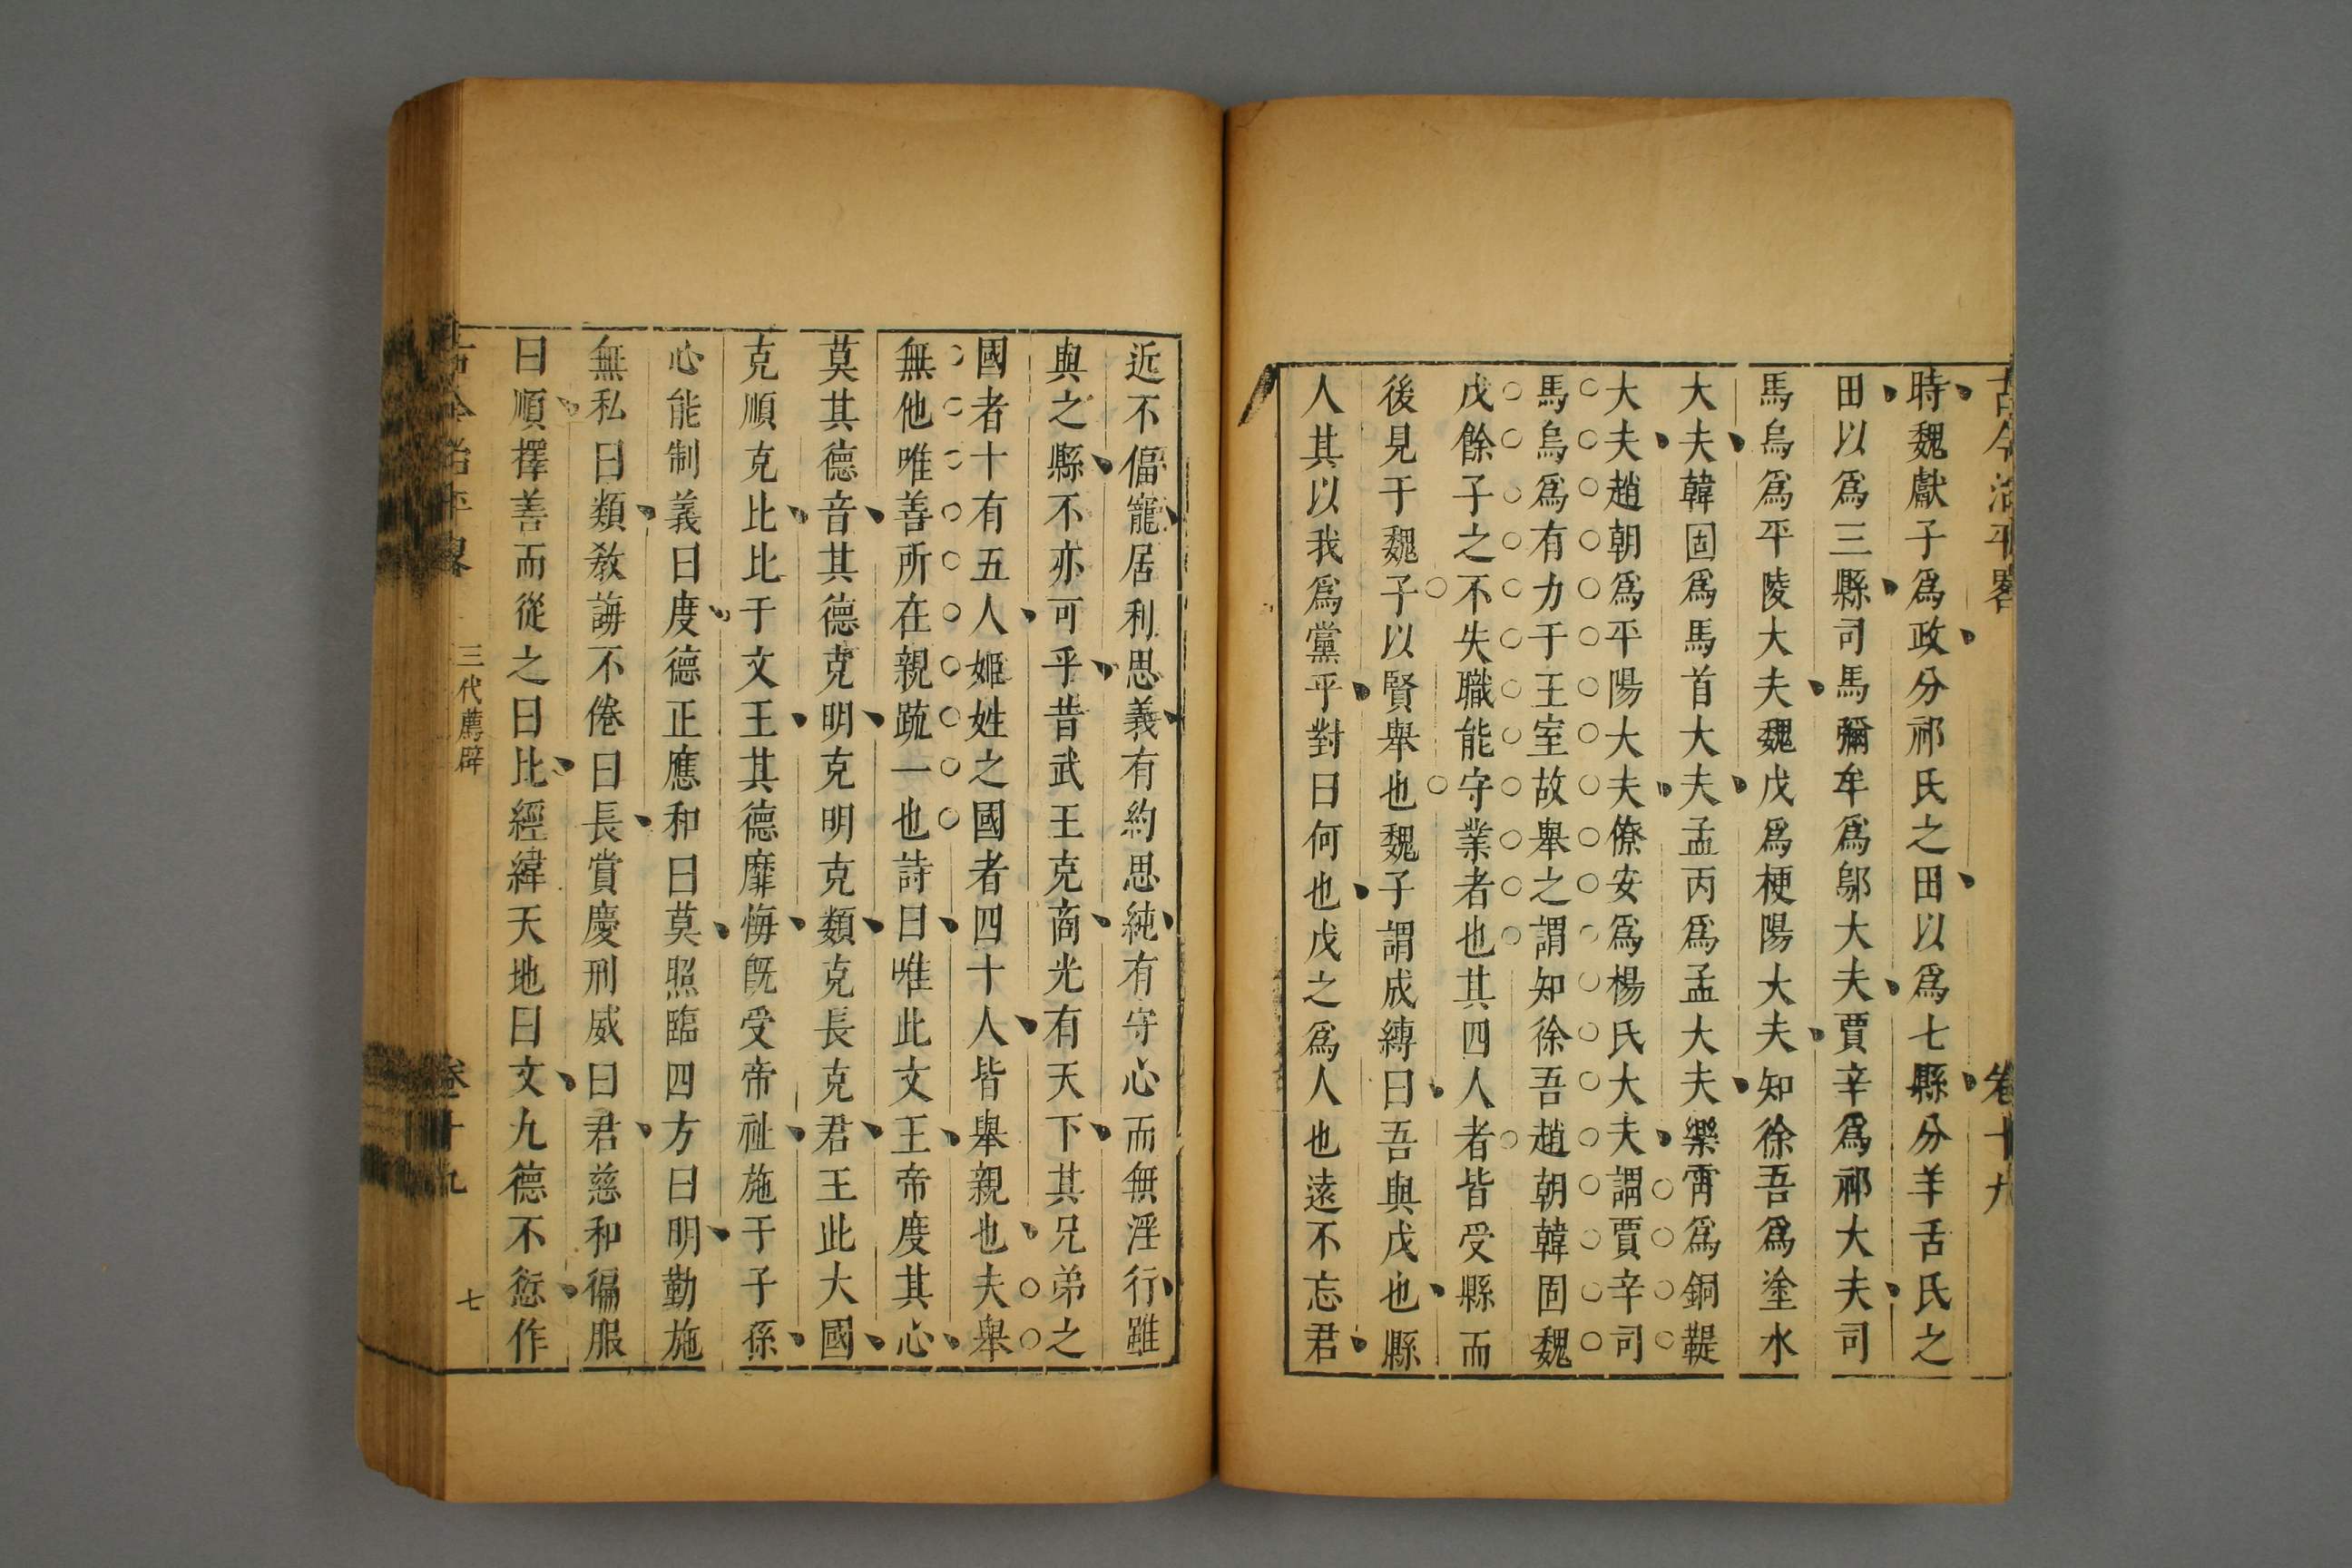 古今治平畧 卷十九
時魏獻子爲政分祁氏之田以爲七縣分羊舌氏之
田以爲三縣司馬彌牟爲鄔大夫賈辛爲祁大夫司
馬烏爲平陵大夫魏戊爲梗陽大夫知徐吾爲塗水
大夫韓固爲馬首大夫孟丙爲孟大夫樂霄爲銅鞮
大夫趙朝爲平陽大夫僚安爲楊氏大夫謂賈辛司
馬烏爲有力于王室故舉之謂知徐吾趙朝韓固魏
戊餘子之不失職能守業者也其四人者皆受縣而
後見于魏子以賢舉也魏子謂成縳曰吾與戊也縣
人其以我爲黨乎對曰何也戊之爲人也遠不忘君
近不偪寵居利思義有約思純有守心而無淫行雖
與之縣不亦可乎昔武王克商光有天下其兄弟之
國者十有五人姬姓之國者四十人皆舉親也夫舉
無他唯善所在親疏一也詩曰唯此文王帝度其心
莫其德音其德克明克明克類克長克君王此大國
克順克比比于文王其德靡悔旣受帝祉施于子孫
心能制義曰度德正應和曰莫照臨四方曰明勤施
無私曰類敎誨不倦曰長賞慶刑威曰君慈和徧服
曰順擇善而從之曰比經緯天地曰文九德不愆作
古今治平畧 三代薦辟 卷十九 七